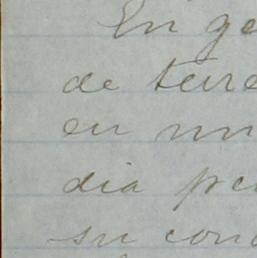 En ge
de terre
en un
dia pe
su con